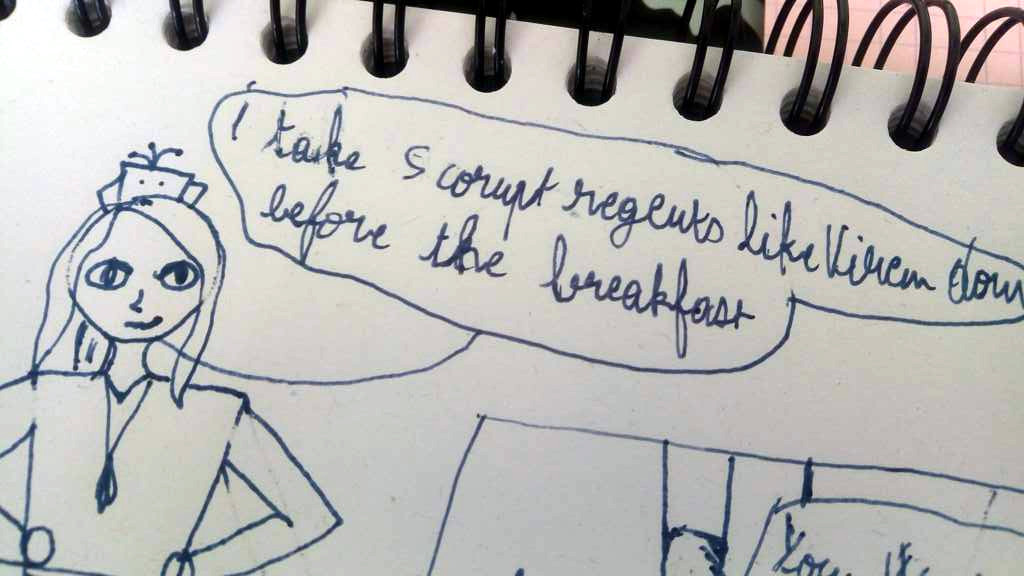 I take 5 corupt regents like Virem down
before the breakfast
You